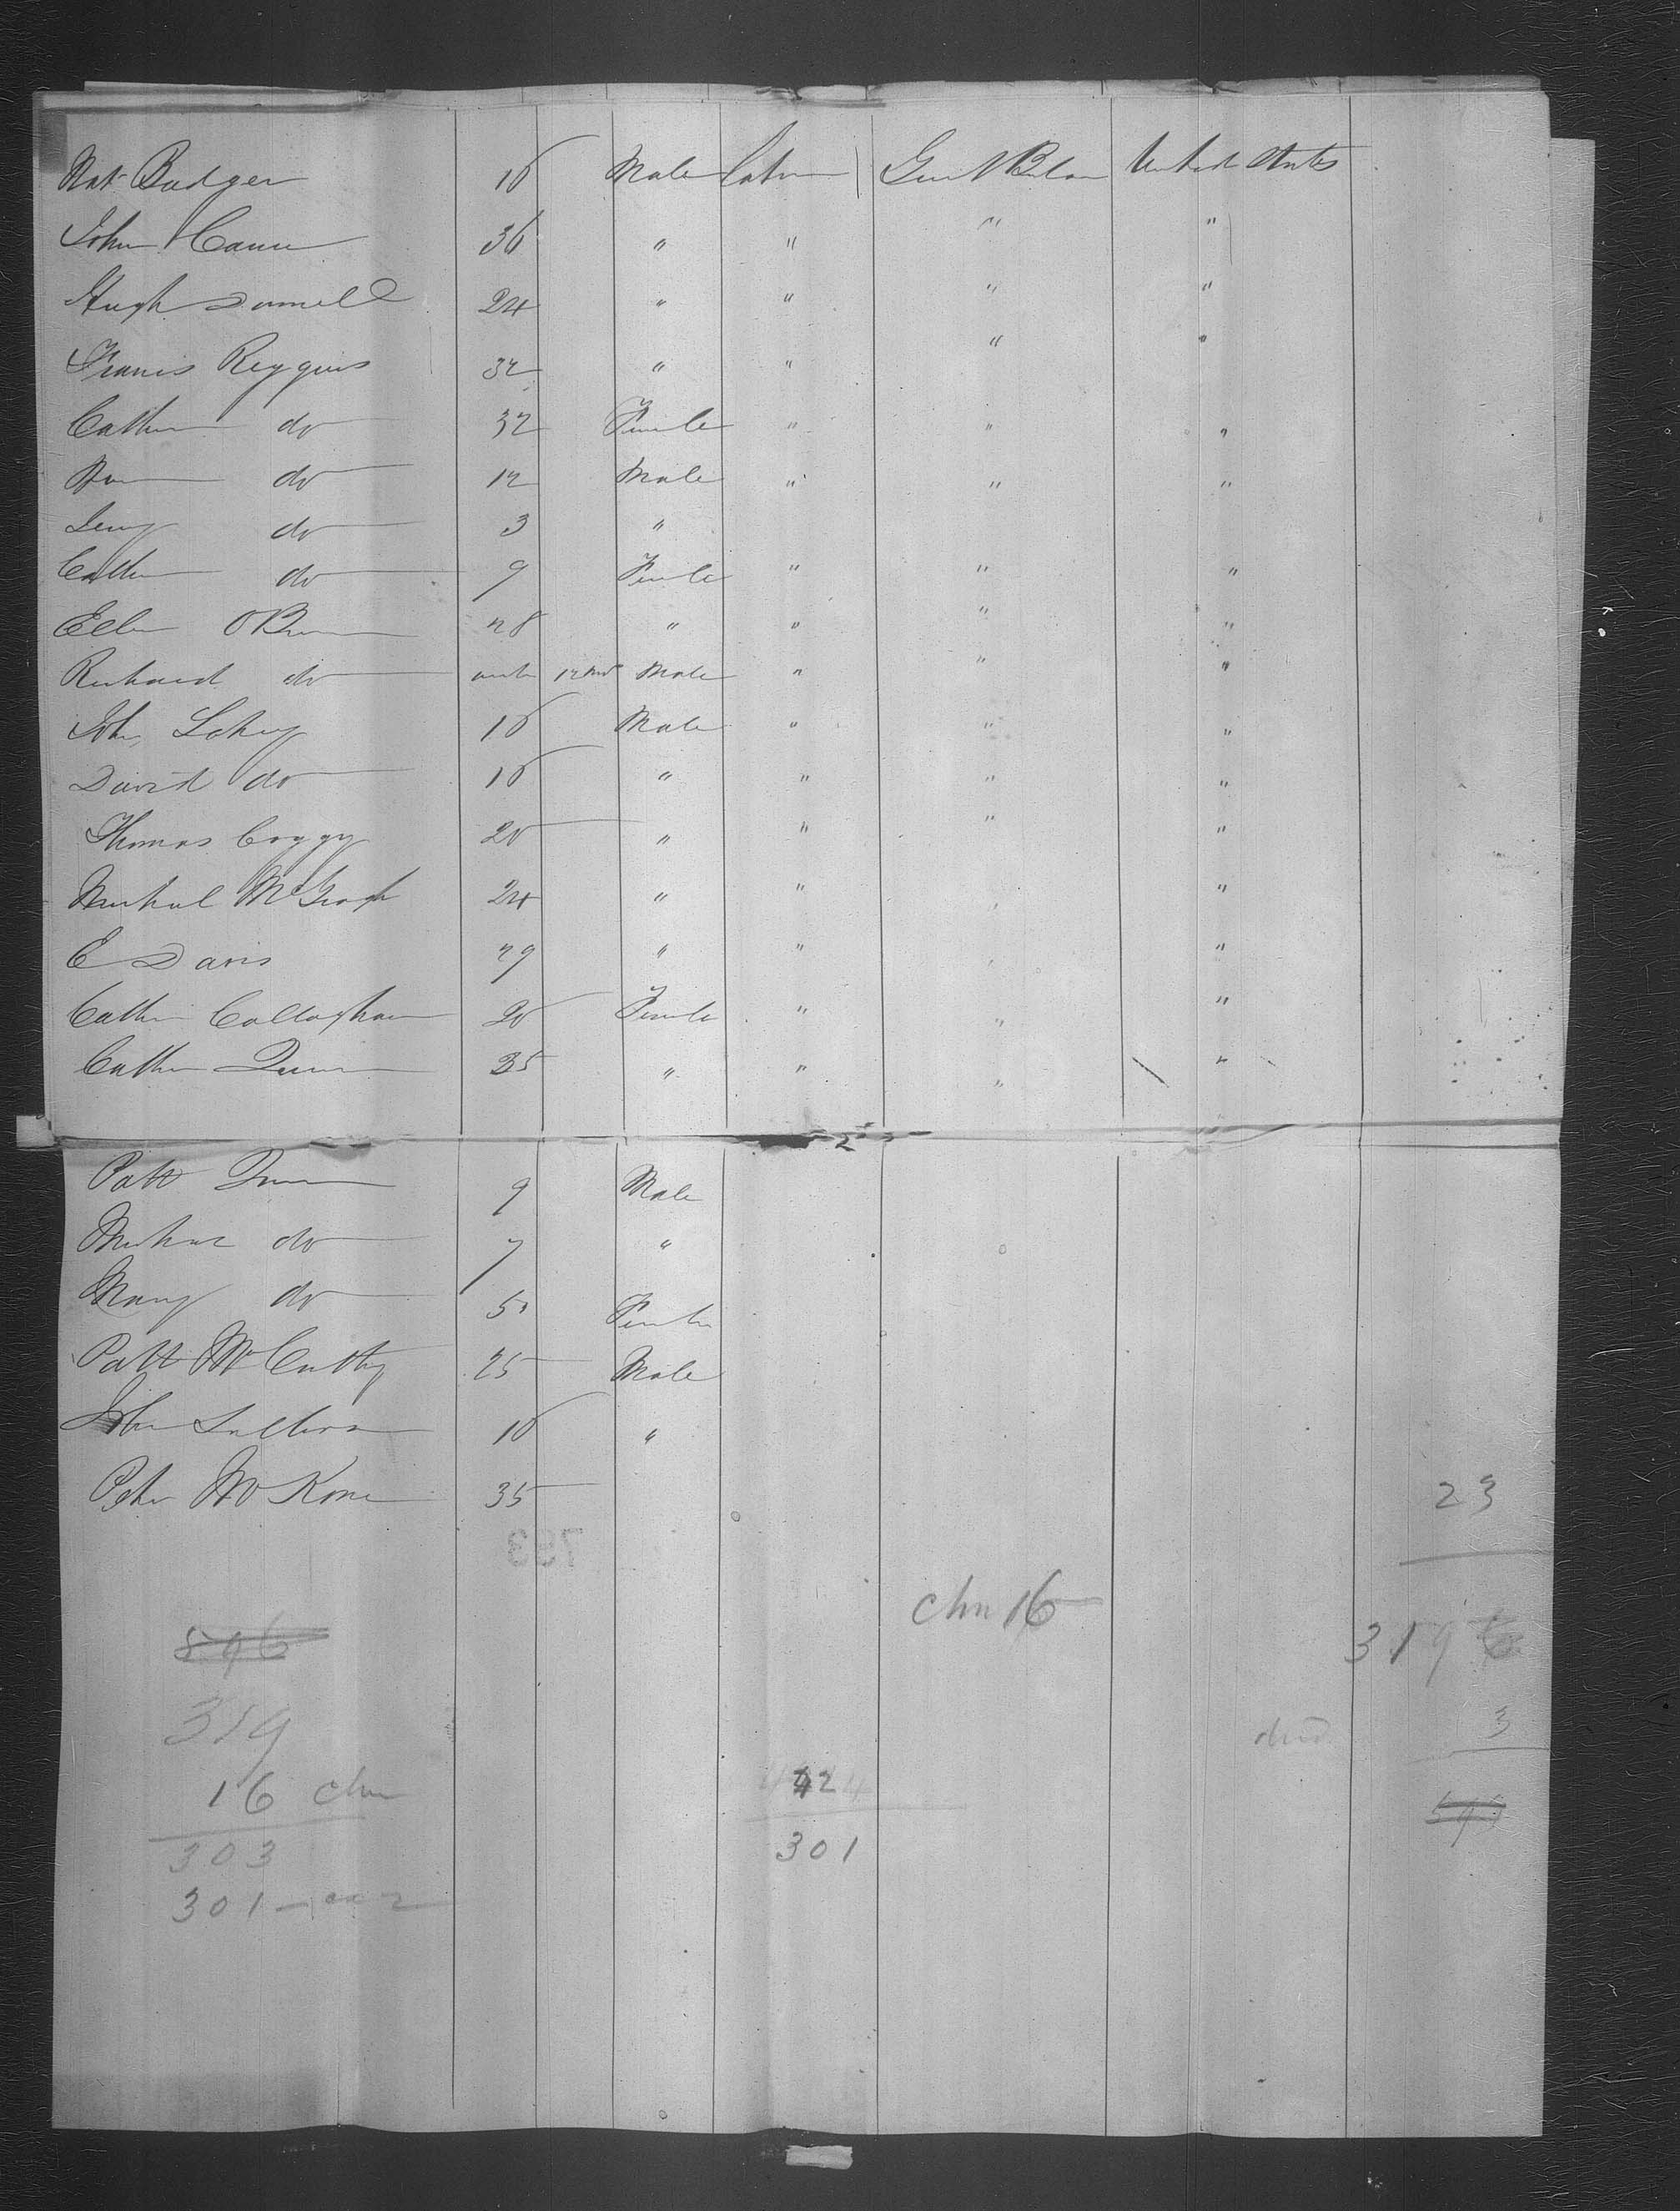 Nat Badger 18 Male Labr Great Britain United States
John Cann 36 " " " "
Hugh Donnell 24 " " " "
Francis Reygins 32 " " " "
Cathn do 32 Female " " "
do 12 Male " " "
do 3 "
Cathn do 9 Female " " "
Ellen OBrien 28 " " " "
Richard do under 12 Mos Male " " "
John Lahey 18 Male " " "
David do 16 " " " "
Thomas Coggy 20 " " " "
Michael McGragh 24 " " " "
E Davis 29 " " " "
Cathn Callaghan 20 Female " " "
Cathn Quinn 35 " " " "
Patt Quinn 9 Male
Michae do 7 "
Mary do 5 Female
Patt McCarthy 25 Male
John Sullivan 18 "
Peter McKone 35
23
793
chn 16
596
319
319
3
16 chn
303
301
301